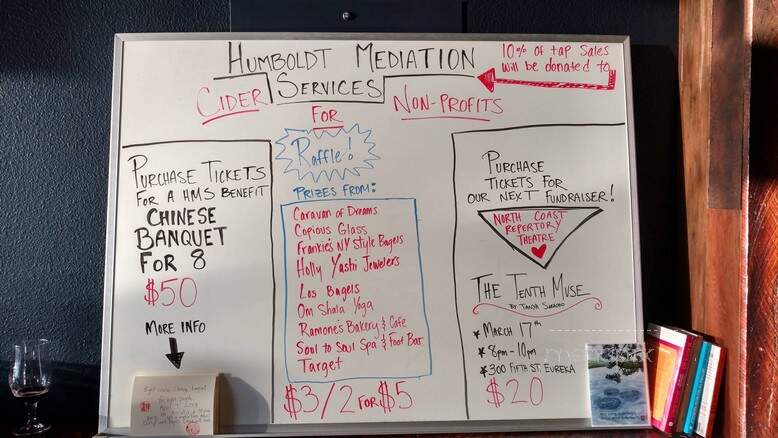 HUMBOLDT MEDIATION
SERVICES
10% of tap sales
will be donated to
CIDER FOR NON-PROFITS
PURCHASE TICKETS
FOR A HMS BENEFIT
CHINESE
BANQUET
FOR 8
$50
MORE INFO
Raffle!
PRIZES FROM:
Caravan of Dreams
Copious Glass
Frankie's NY Style Bagels
Holly Yashi Jewelers
Los Bagels
Om Shala Yoga
Ramone's Bakery & Cafe
Soul to Soul Spa & Foot Bar
Target
$3/2 FOR $5
PURCHASE
TICKETS FOR
OUR NEXT FUNDRAISER!
NORTH COAST
REPERTORY
THEATRE
THE TENTH MUSE
BY TANYA
* MARCH 17TH
* 8pm-10pm
* 300 FIFTH ST. EUREKA
$20